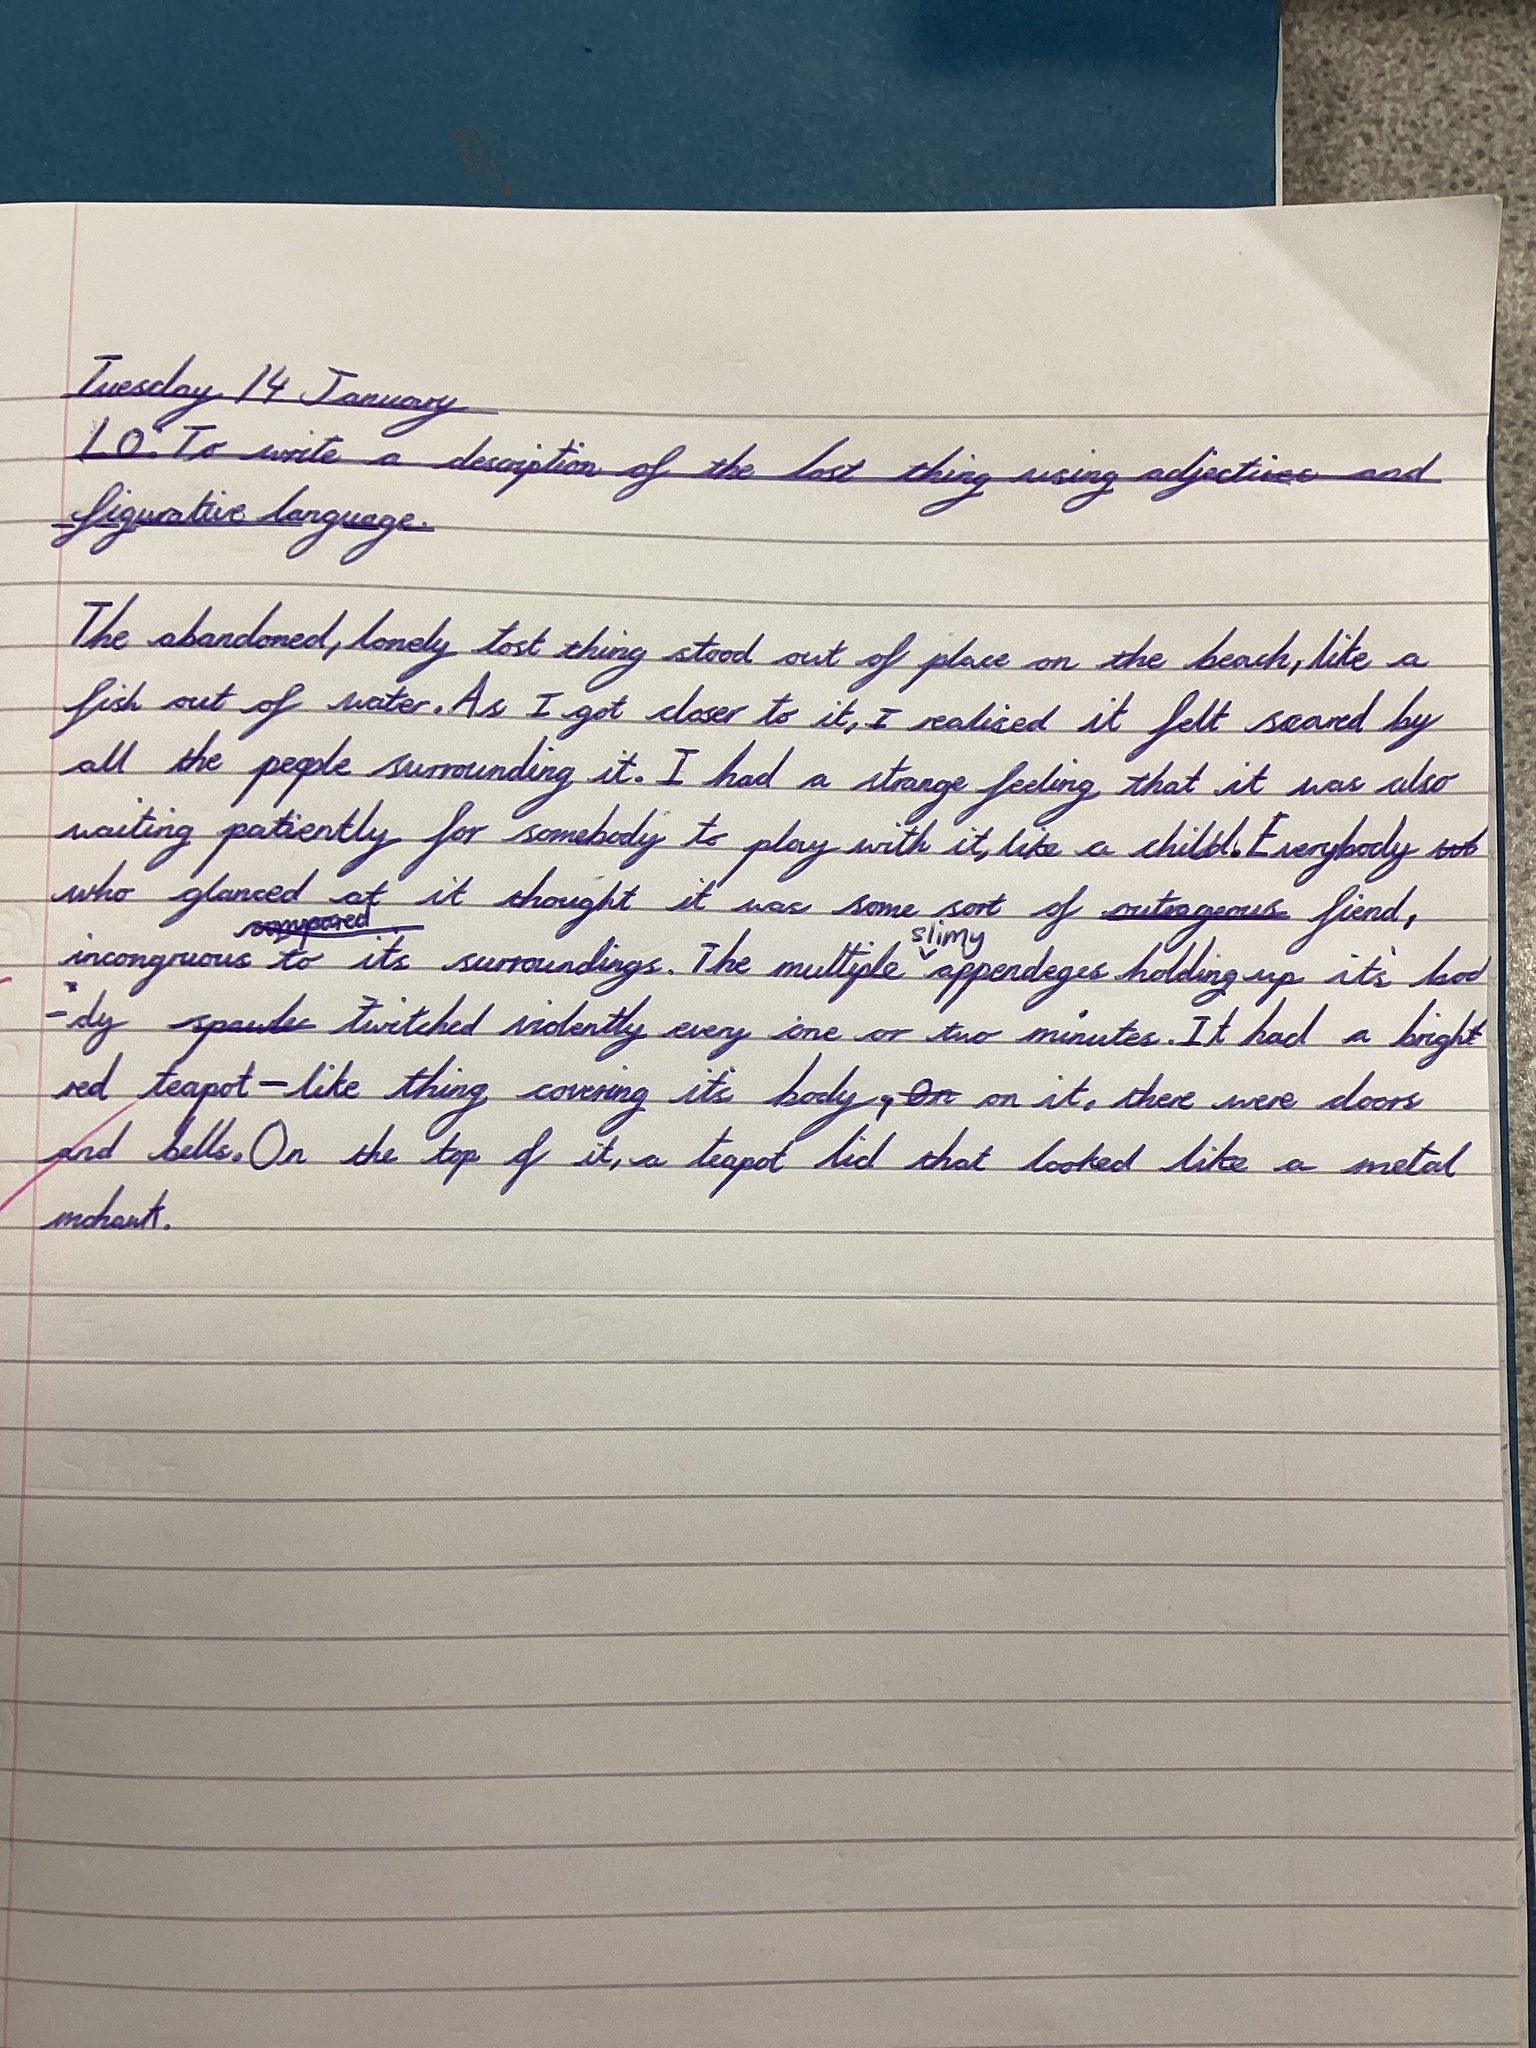 Tuesday 14 January
L.O: To write a description of the lost thing using adjectives and
figurative language.
The abandoned, lonely lost thing stood out of place on the beach, like a
fish out of water. As I got closer to it, I realised it felt scared by
all the people surrounding it. I had a strange feeling that it was also
waiting patiently for somebody to play with it, like a child. Everybody
who glanced at it thought it was some sort of outrageous fiend,
compared
slimy
incongruous to its surroundings. The multiple appendeges holding up it's bod
-dy twitched violently every one or two minutes. It had a bright
red teapot-like thing covering it's body, On on it, there were doors
and bells. On the top of it, a teapot lid that looked like a metal
mohawk.